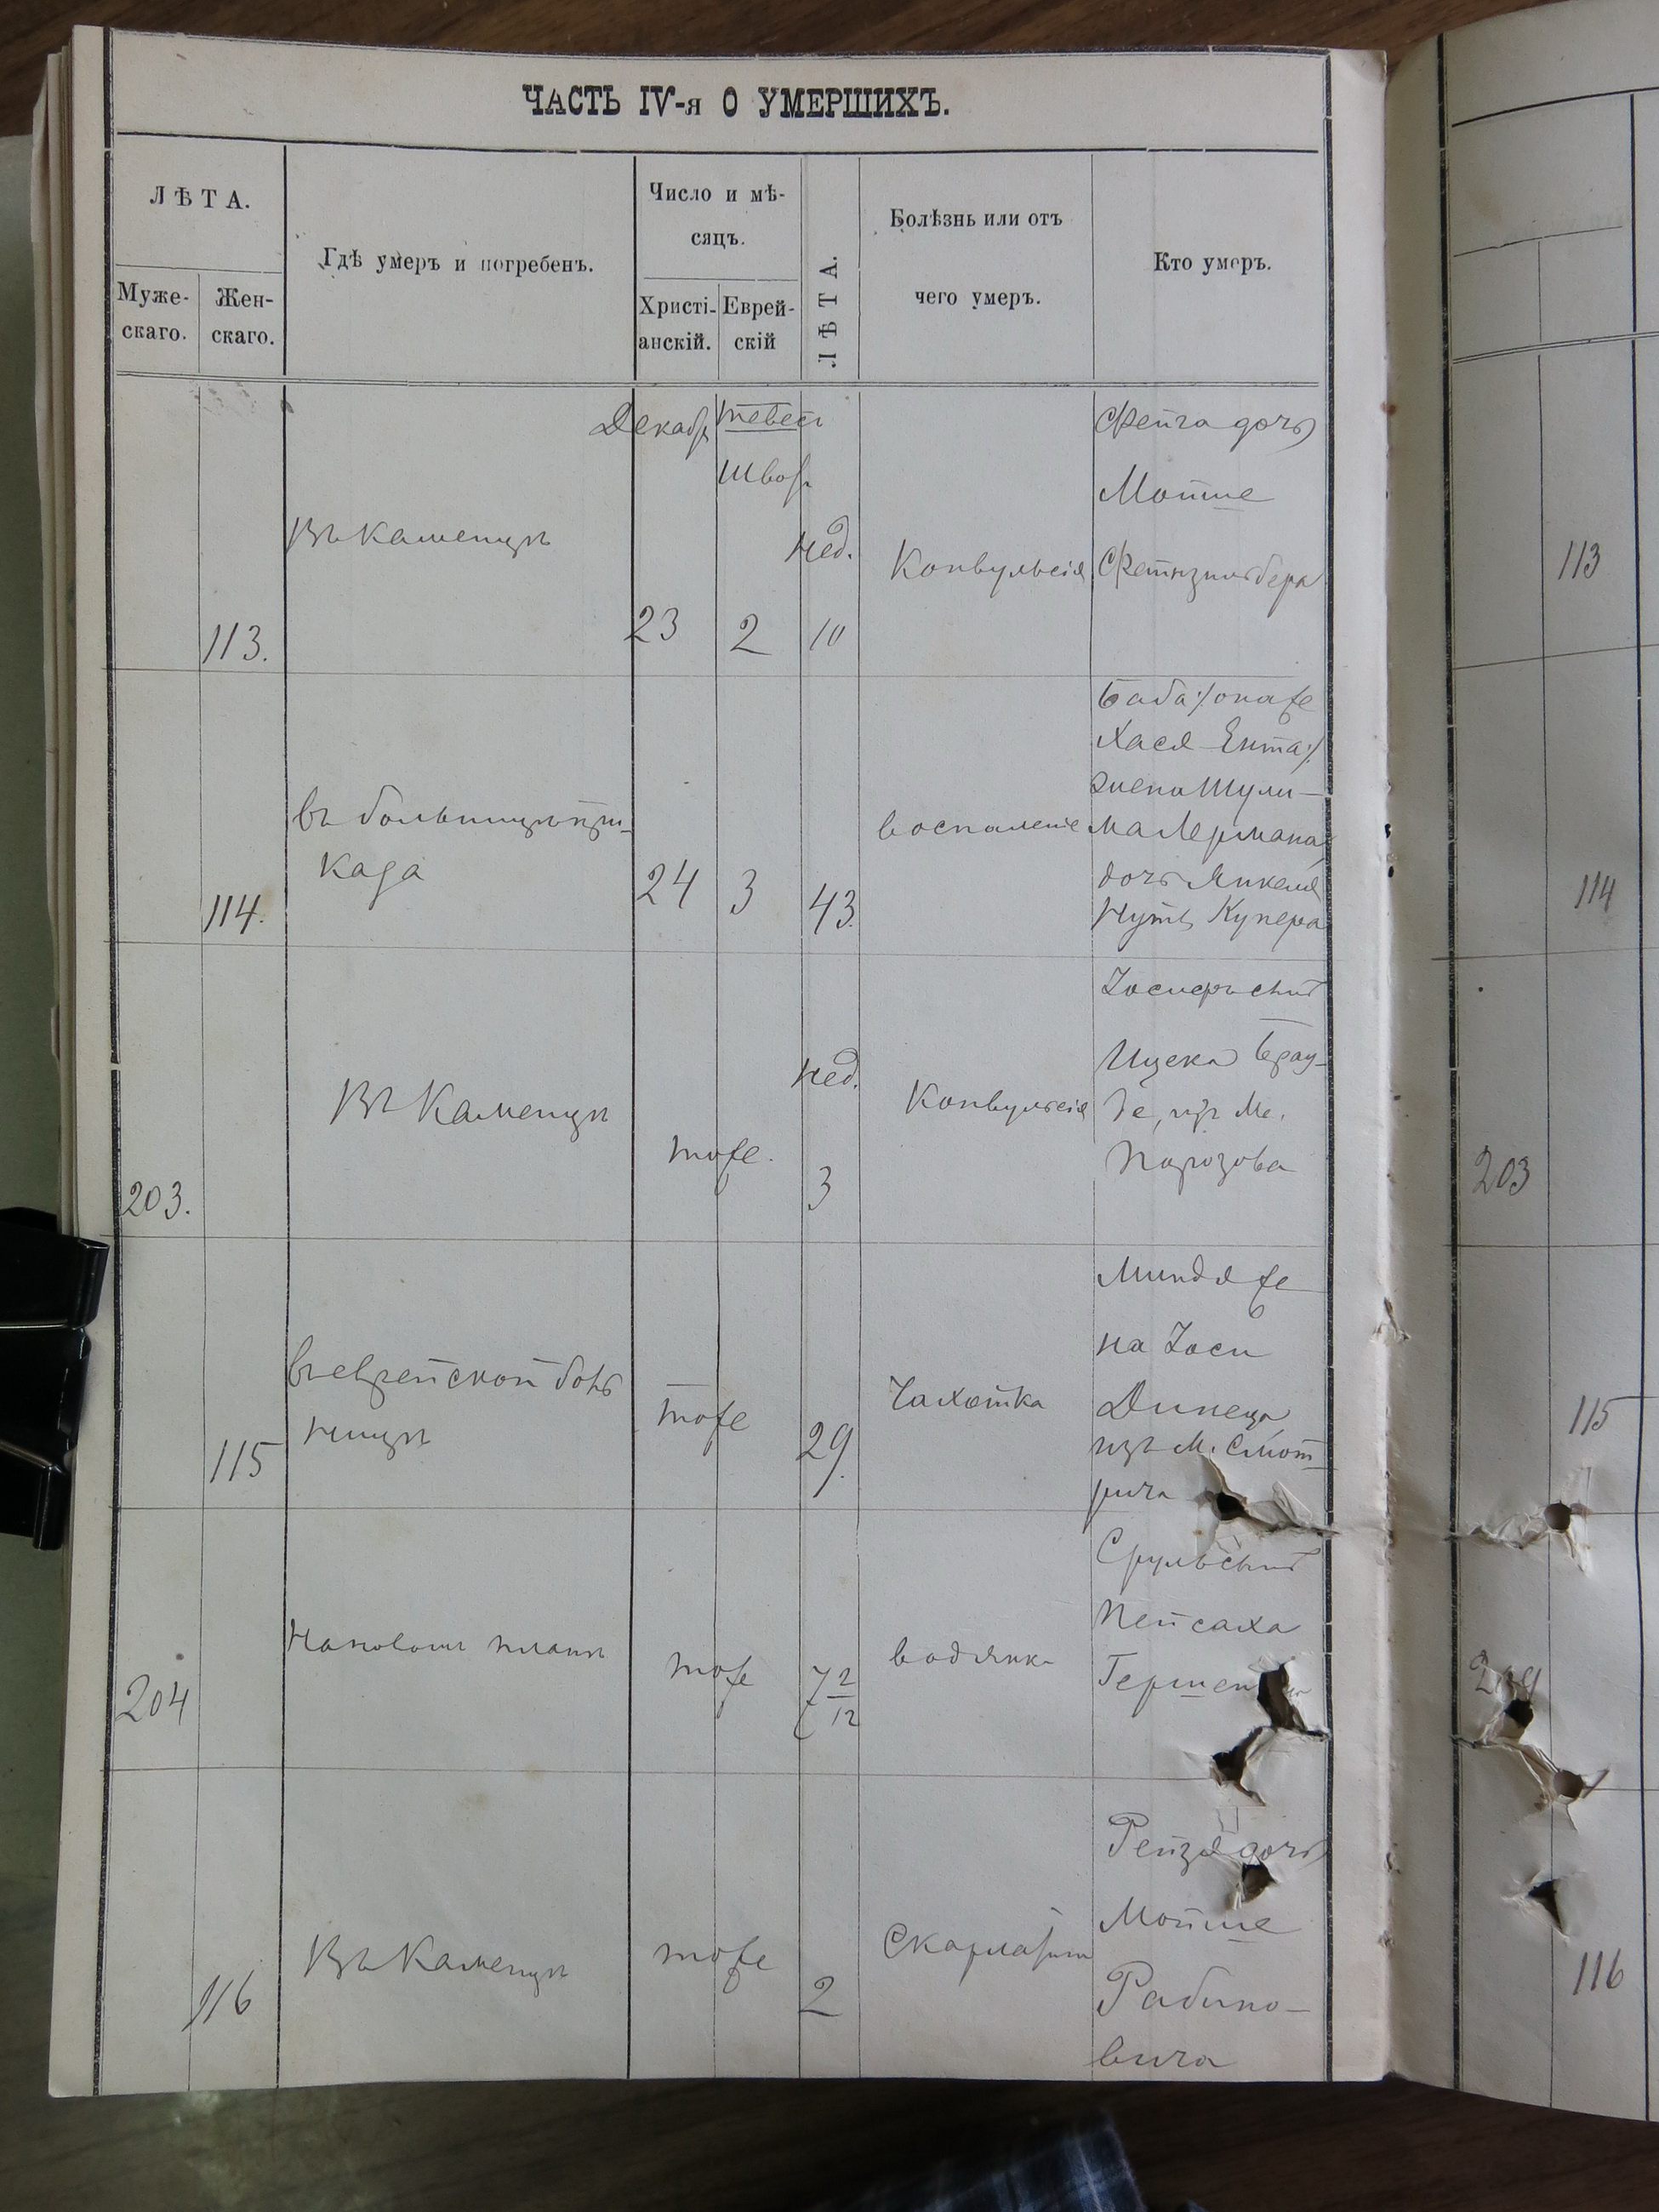 ЧАСТЬ IV-я О УМЕРШИХЪ.
ЛѢТА.
Муже-
скаго.
Жен-
скаго.
Гдѣ умеръ и погребенъ.
Число и мѣ-
сяцъ.
Христі-
анскій.
Еврей-
скій
ЛѢТА.
Болѣзнь или отъ
чего умеръ.
Кто умеръ.
113.
Въ Каменцѣ
Декабр
тевес
Шват
23
2
нед.
10
Конвульсія
Фейга дочь
Мойше
113
114.
въ больницѣ при-
каза
24
3
43.
воспаленіе
Баба /: она же
Хася Ента :/
жена Шули-
ма Лермана
дочь Янкеля
Нутъ Купера
114
203.
Въ Каменцѣ
тоже.
нед.
3
Конвульсія
Иосифъ сынъ
Ицека Брау-
де, изъ м.
203
115
въ еврейской боль
ницѣ
тоже
29.
Чахотка
Миндя же
на Иоси
изъ м. Смот
рича
115
204
На новомъ планѣ
тоже
7 2/12
водянк
Сруль сынъ
Пейсаха
204
116
Въ Каменцѣ
тоже
2
Скарлатин
Рейзя дочь
Мойше
Рабино-
вича
116